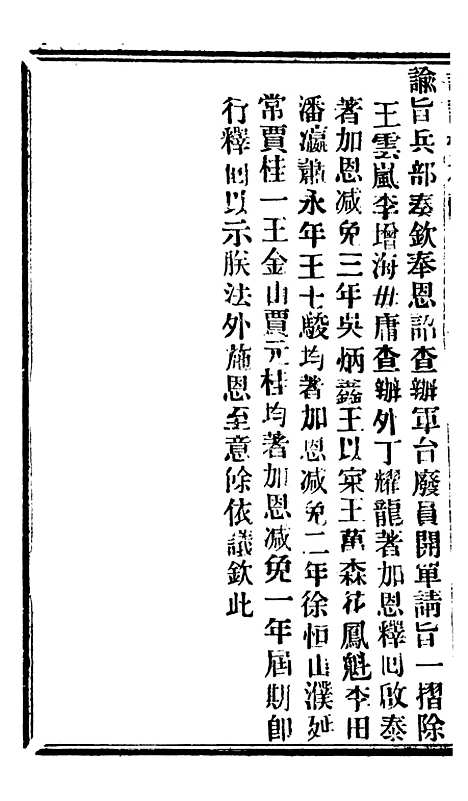 諭旨兵部奏欽奉恩詔查辦軍台廢員開單請旨一摺除
王雲嵐李增海毋庸查辦外丁耀龍著加恩釋囘啟泰
著加恩減免三年吳炳鑫王以寀王萬森花鳳魁李田
潘瀛蕭永年王七駿均著加恩減免二年徐恒山濮延
常賈桂一王金山賈元桂均著加恩減免一年屆期卽
行釋囘以示朕法外施恩至意餘依議欽此